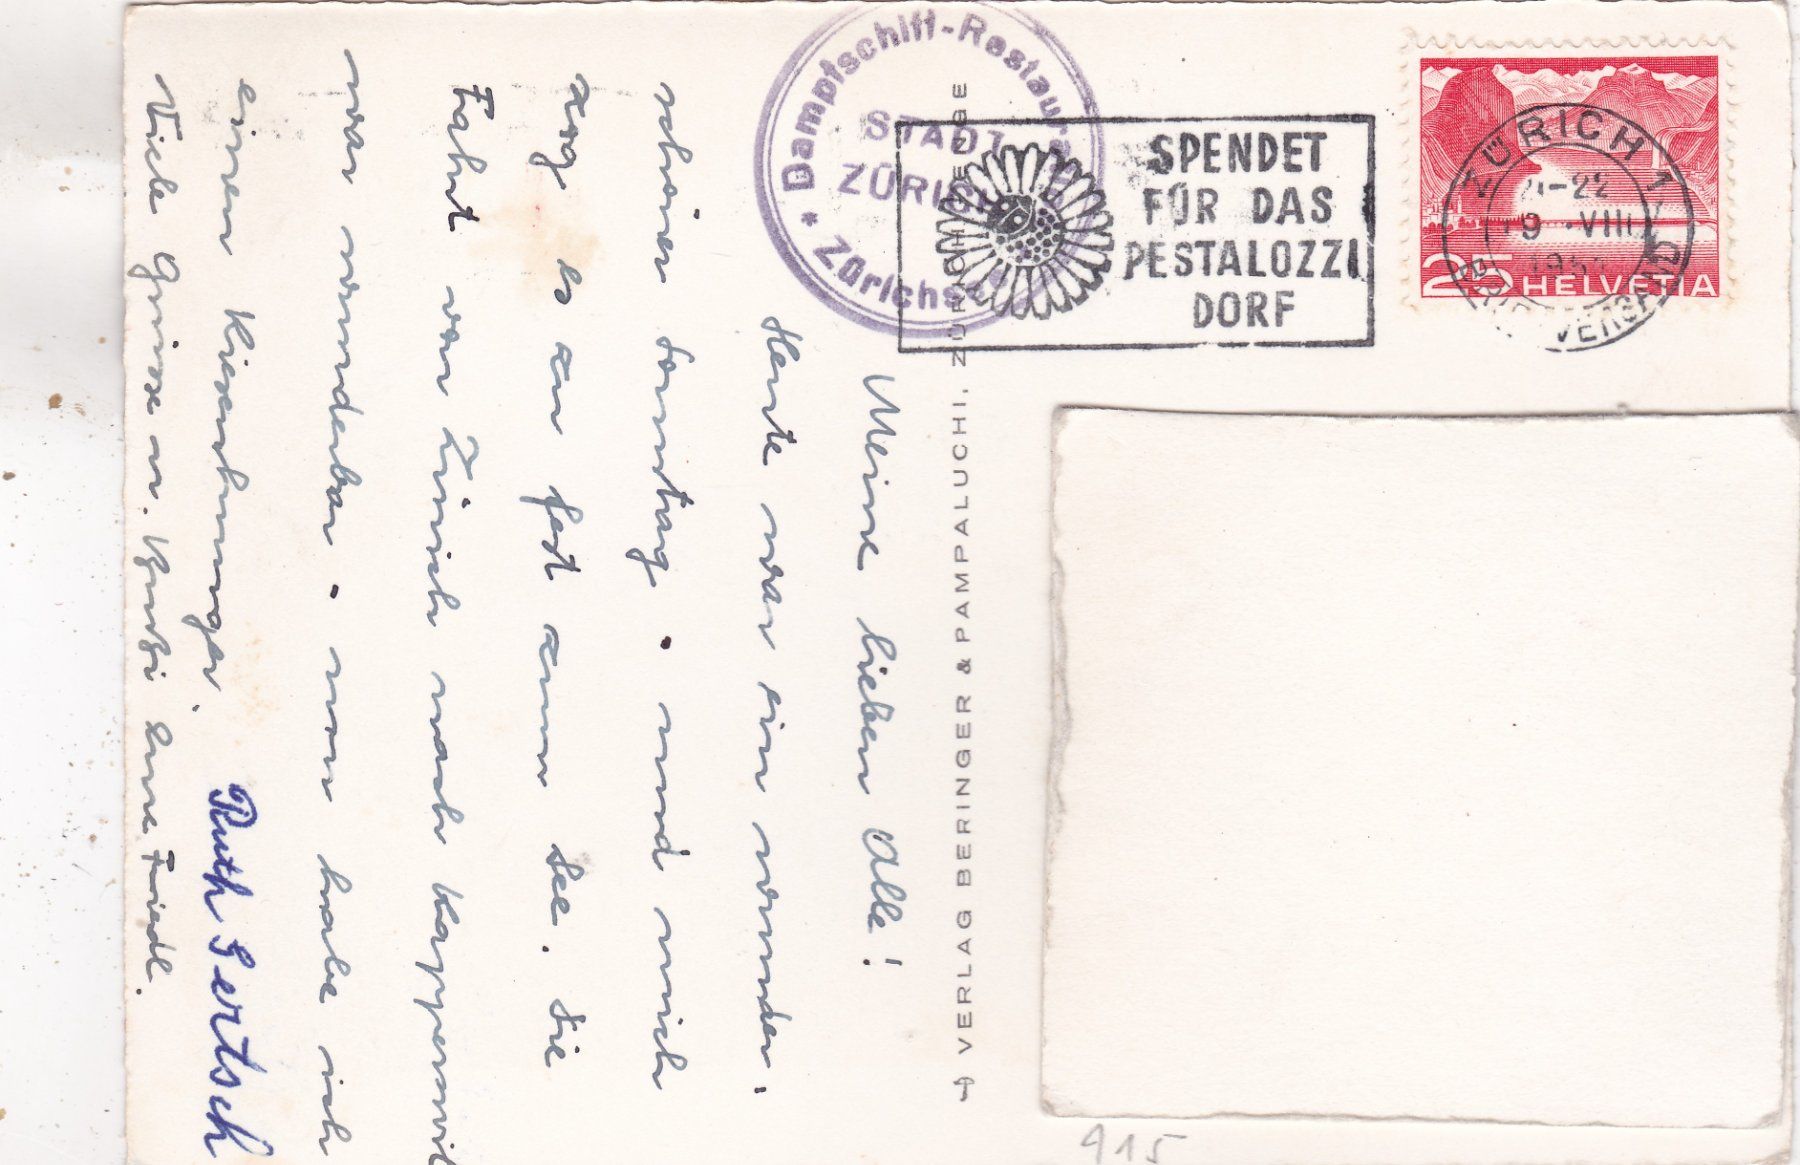 Dampfschiff-Restaura
STADT
ZÜRICH
* Zürichse
SPENDET
FÜR DAS
PESTALOZZI
DORF
ZÜRICH 1
21-22
9. VIII
VERSAND
25 HELVETIA
Meine lieben Alle!
Heute war ein wunder-
schöner Sonntag - und mich
zog es an fest zum See. Die
Fahrt von Zürich nach Rapperswil
war wunderbar - nun habe ich
einen Riesenhunger.
Viele Grüsse u. Bussi Eure Friedl.
Ruth Gertsch
VERLAG BERINGER & PAMPALUCHI, ZÜRICH
915